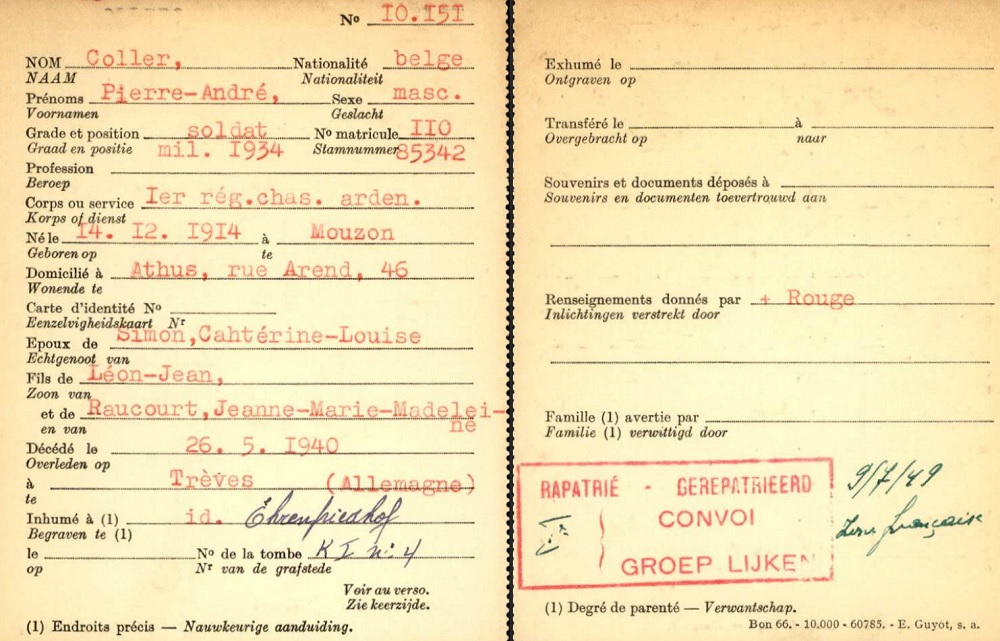 Nº 10.151
NOM Coller, Nationalité belge
NAAM Nationaliteit
Prénoms Pierre-André, Sexe masc.
Voornamen Geslacht
Grade et position soldat Nº matricule IIO
Graad en positie mil. I934 Stamnummer 85342
Profession
Beroep
Corps ou service Ier rég.chas. arden.
Korps of dienst
Né le 14. I2. I9I4 à Mouzon
Geboren op te
Domicilié à Athus, rue Arend, 46
Wonende te
Carte d'identité Nº
Eenzelvigheidskaart Nr
Epoux de Simon,Cahtérine-Louise
Echtgenoot van
Fils de Léon-Jean,
Zoon van
et de Raucourt,Jeanne-Marie-Madelei-
en van ne
Décédé le 26. 5. I940
Overleden op
à Trèves (Allemagne)
te
Inhumé à (1) id. Ehrenfriedhof
Begraven te (1)
le Nº de la tombe K I nº 4
op Nr van de grafstede
Voir au verso.
Zie keerzijde.
(1) Endroits précis — Nauwkeurige aanduiding.
Exhumé le
Ontgraven op
Transféré le à
Overgebracht op naar
Souvenirs et documents déposés à
Souvenirs en documenten toevertrouwd aan
Renseignements donnés par + Rouge
Inlichtingen verstrekt door
Famille (1) avertie par
Familie (1) verwittigd door
RAPATRIÉ - GEREPATRIEERD
CONVOI
GROEP LIJKEN
9/7/49
Zone française
(1) Degré de parenté — Verwantschap.
Bon 66. - 10.000 - 60785. - E. Guyot, s. a.